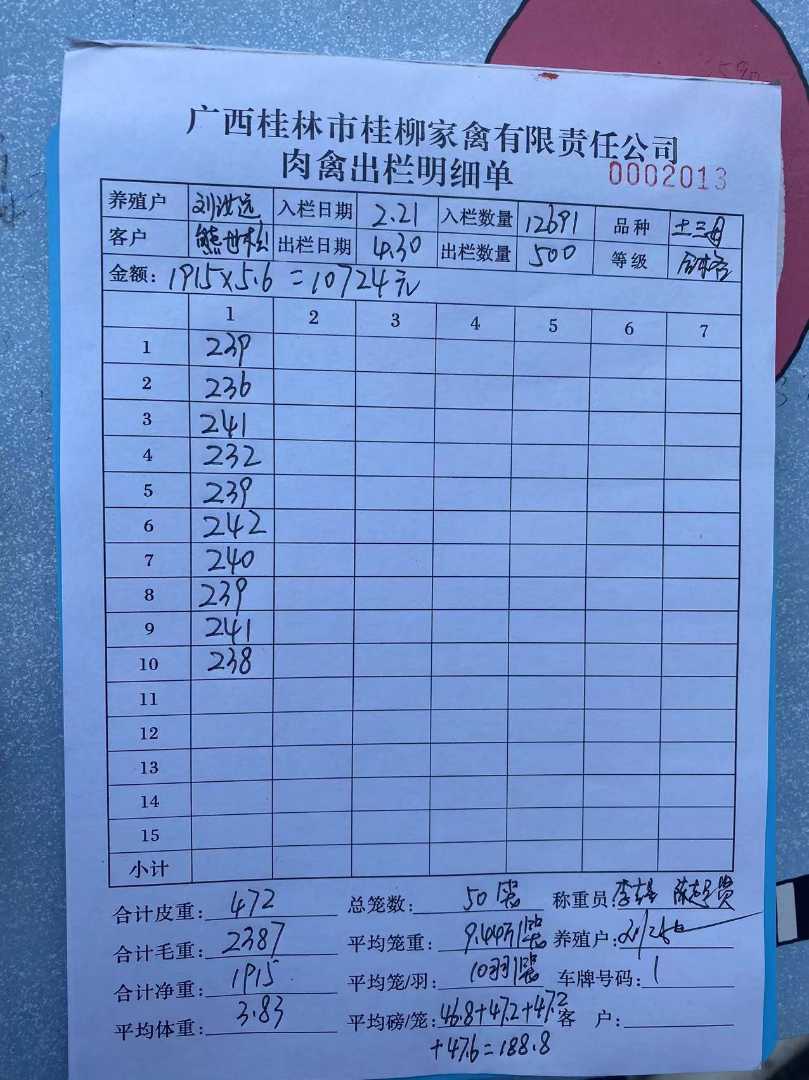 广西桂林市桂柳家禽有限责任公司
肉禽出栏明细单 0002013
养殖户 入栏日期 2.21 入栏数量 12691 品种 土三母
客户 熊世松 出栏日期 4.30 出栏数量 500 等级 合格
金额: 1915×5.6=10724元
1 2 3 4 5 6 7
1 239
2 236
3 241
4 232
5 239
6 242
7 240
8 239
9 241
10 238
11
12
13
14
15
小计
合计皮重: 472 总笼数: 50 称重员:
合计毛重: 2387 平均笼重: 9.44 养殖户:
合计净重: 1915 平均笼/羽: 10羽 车牌号码: 1
平均体重: 3.83 平均磅/笼: 46.8+47.2+47.2 客 户:
+47.6=188.8